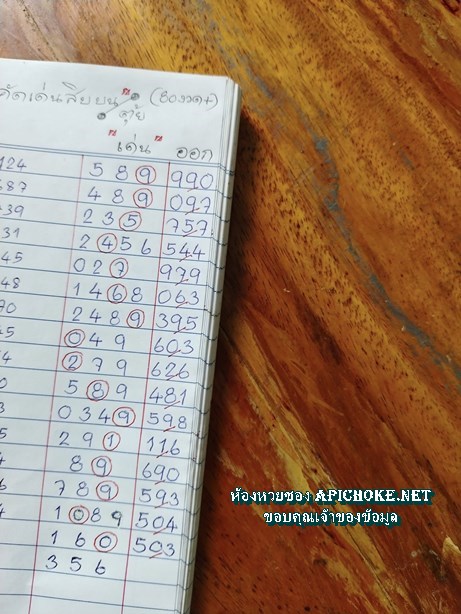 คัดเด่นสิบบน (80งวด+)
สุ้ย
เด่น ออก
124 589 990
487 489 097
439 235 757
431 2456 544
45 027 979
48 1468 063
70 2489 395
45 049 603
4 279 626
0 589 481
3 0349 598
5 291 116
4 89 690
5 789 593
4 1089 504
160 503
356
ห้องหวยซอง APICHOKE.NET
ขอบคุณเจ้าของข้อมูล